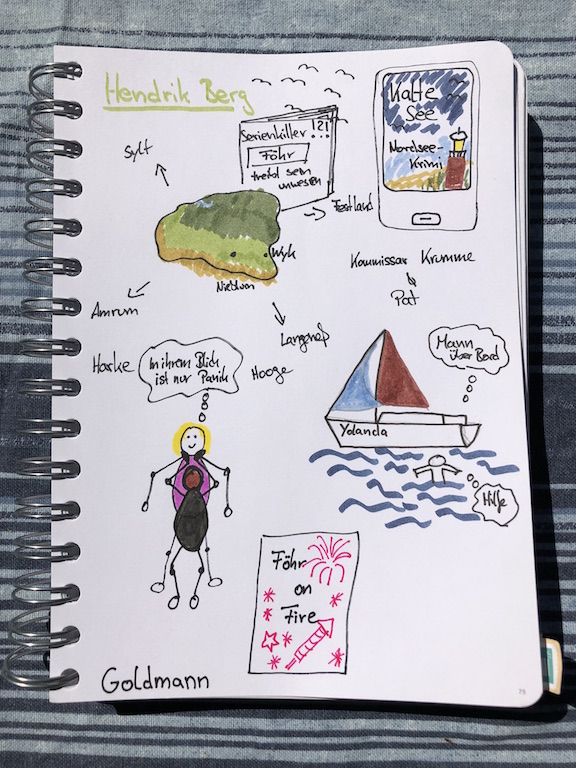 Hendrik Berg
Sylt
Serienkiller !?!
Föhr
treibt sein
unwesen
Kalte
See
Nordsee-
Krimi
Festland
Wyk
Nieblum
Kommissar Krumme
Pat
Amrum
Langeneß
Haske
In ihrem Blick
ist nur Panik
Hooge
Mann
über Bord
Yolanda
Hilfe
Föhr
on
Fire
Goldmann
75